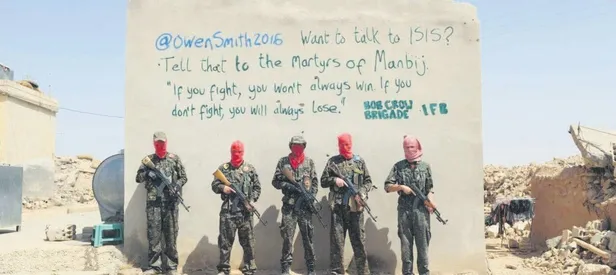 @OwenSmith2016 Want to talk to ISIS?
Tell that to the martyrs of Manbij.
"If you fight, you won't always win. If you
don't fight, you will always lose."
BOB CROW
BRIGADE IFB